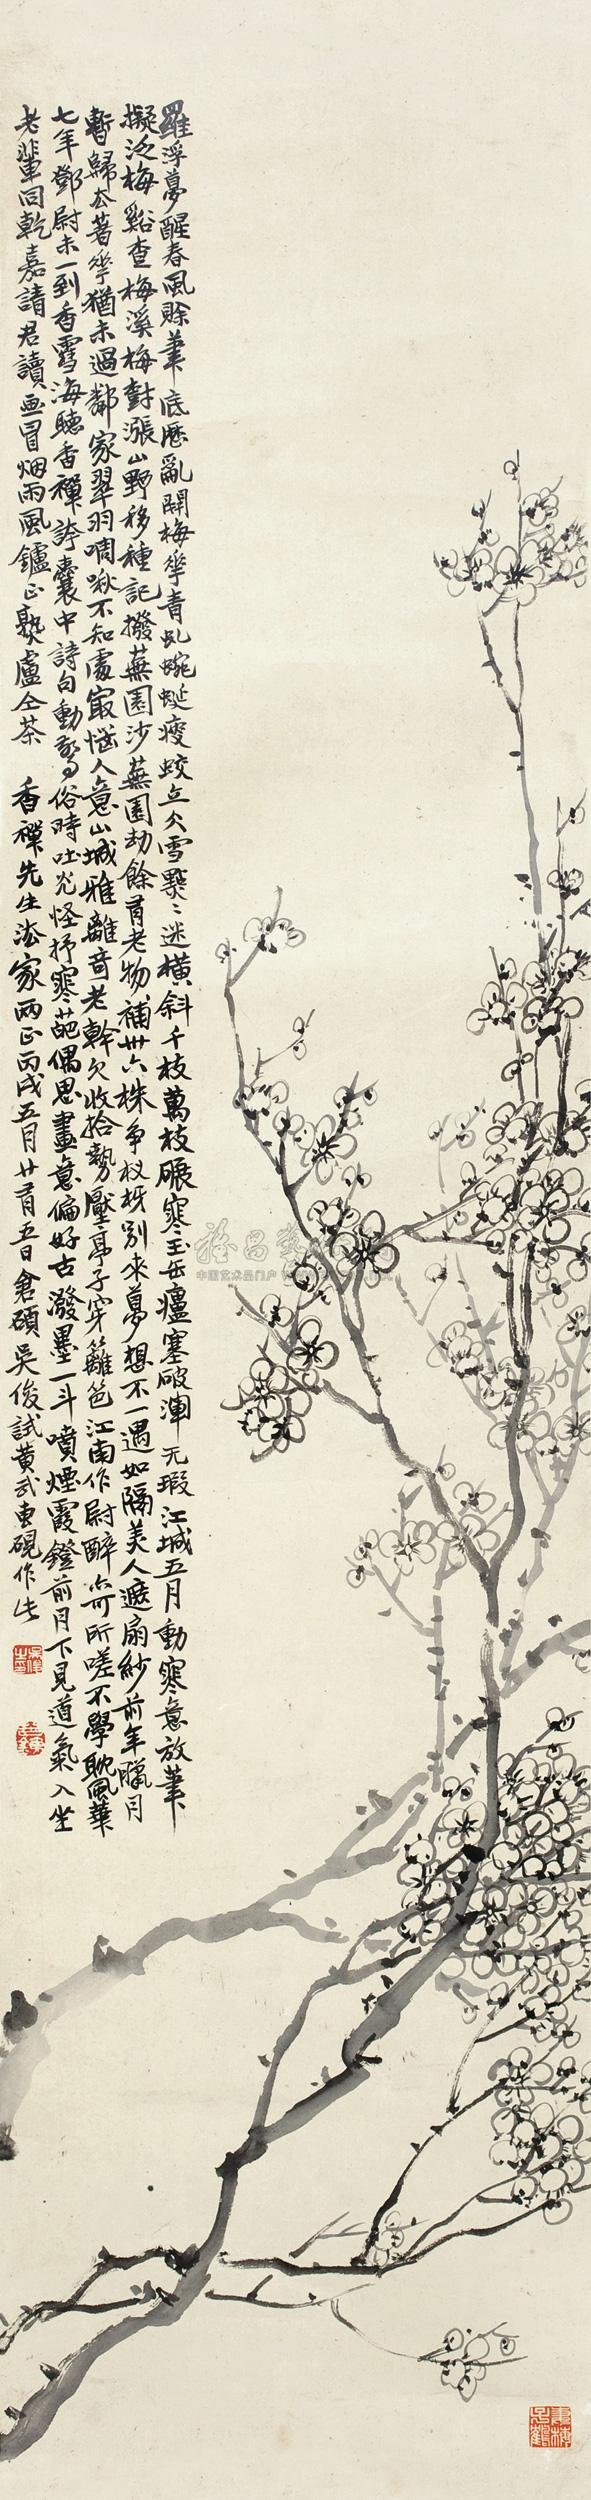 羅浮夢醒春風賒筆底歷亂開梅華青虬蜿蜒瘦蛟立欠雪點點迷橫斜千枝萬枝碾寒玉缶廬塞破渾无瑕江城五月動寒意放筆
擬泛梅谿查梅溪梅對漲山野移種記撥蕪園沙蕪園劫餘有老物補卅六株爭杈枒別來夢想不一遇如隔美人遮扇紗前年臘月
暫歸去著華猶未過鄰家翠羽啁啾不知處最惱人意山城鴉離奇老幹欠收拾勢壓亭子穿籬笆江南作尉醉亦可所嗟不學耽風華
七年鄧尉未一到香雪海聽香禪誇囊中詩句動驚俗時吐光怪抒寒葩偶思畫意偏好古潑墨一斗噴煙霞鐙前月下見道氣入坐
老輩同乾嘉請君讀畫冒烟雨風鑪正熟盧仝茶 香禪先生法家兩正丙戌五月廿有五日倉碩吳俊試黃武專硯作此